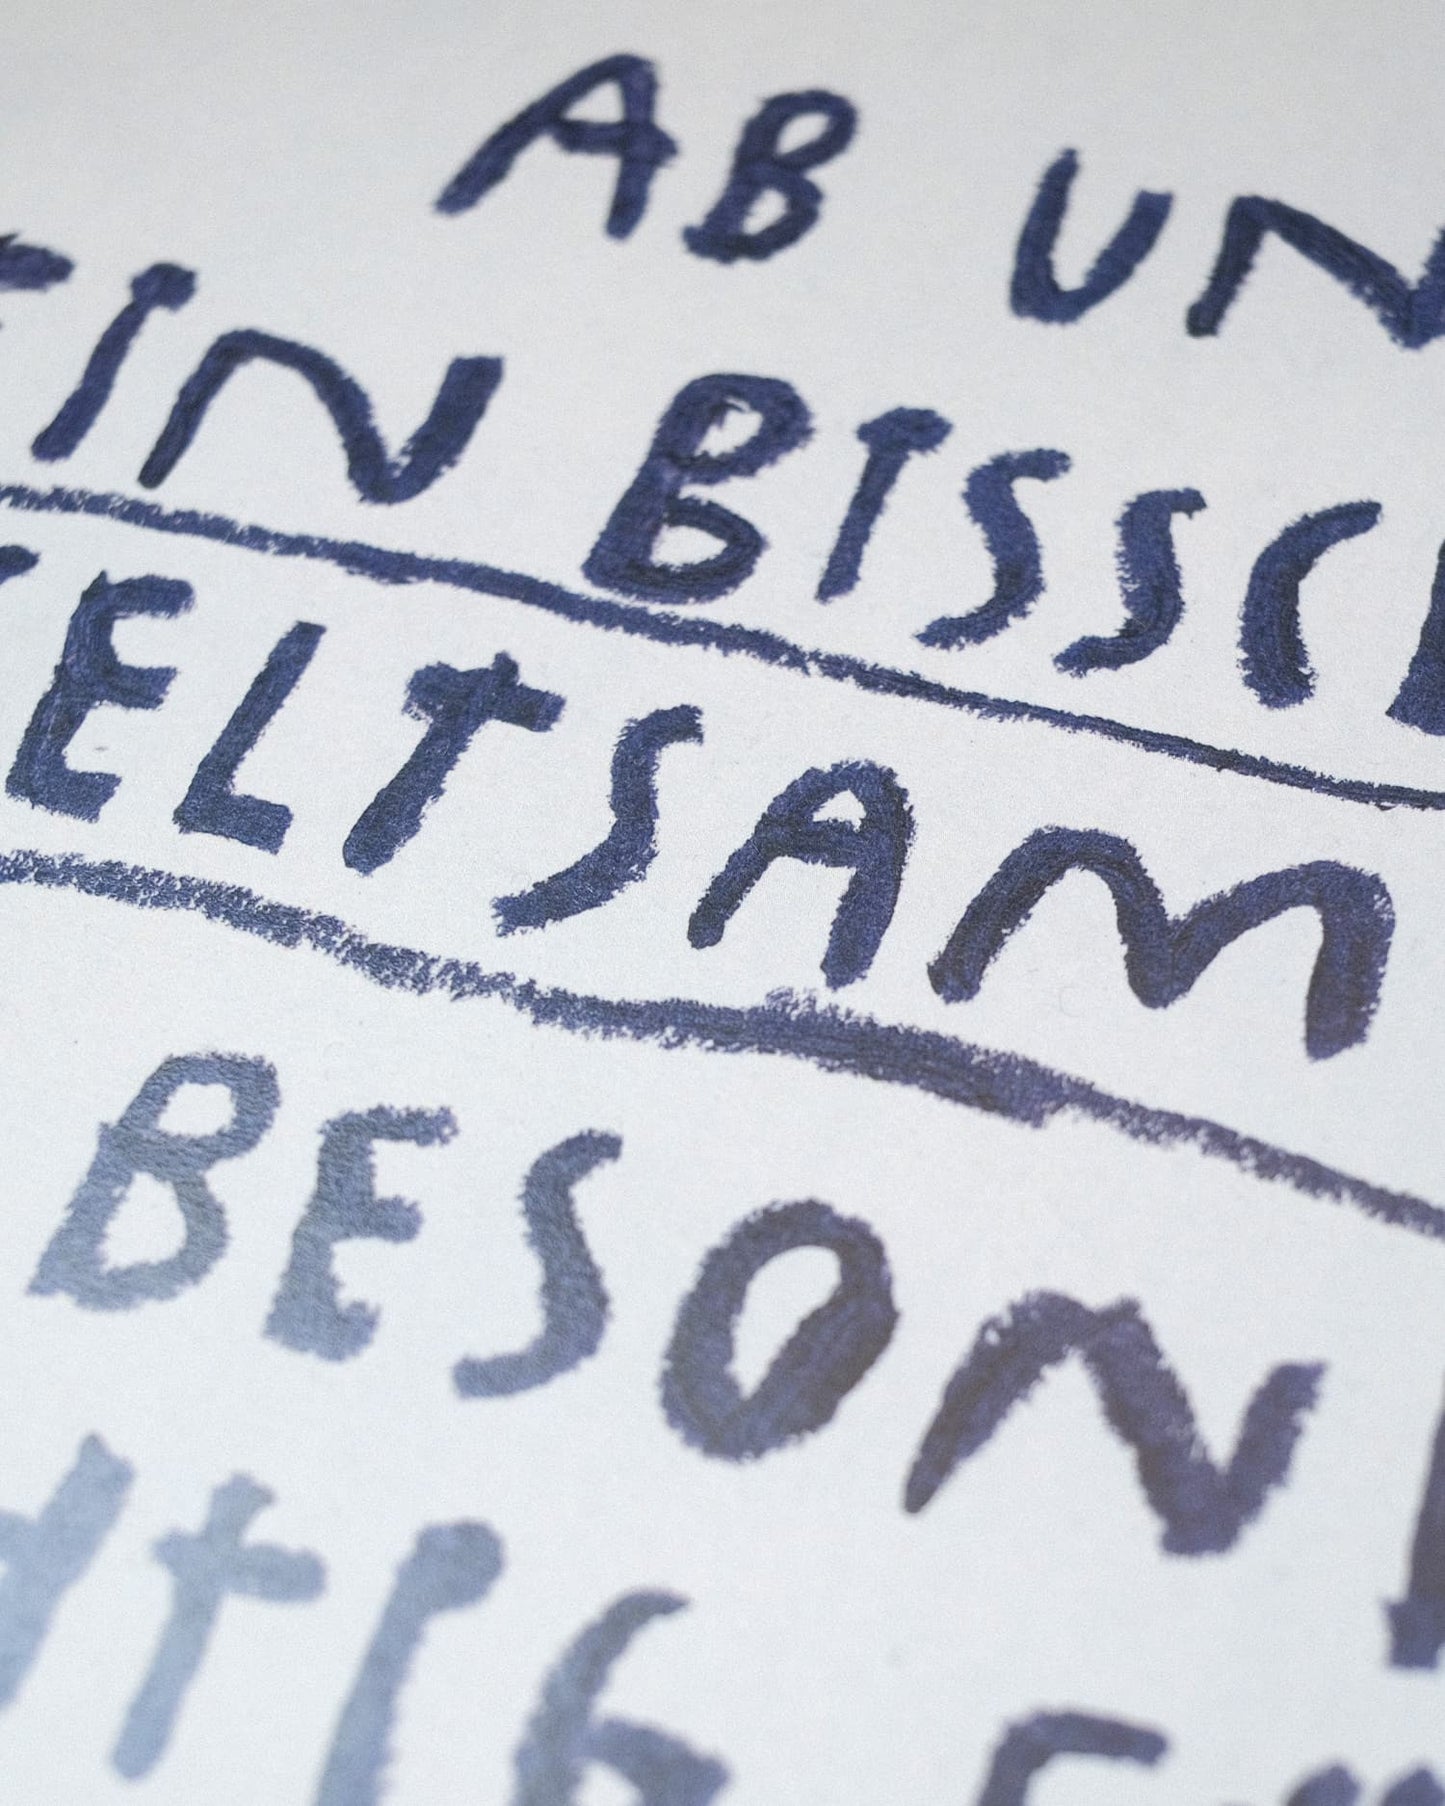 AB UN
EIN BISSC
SELTSAM
BESON
HTIG